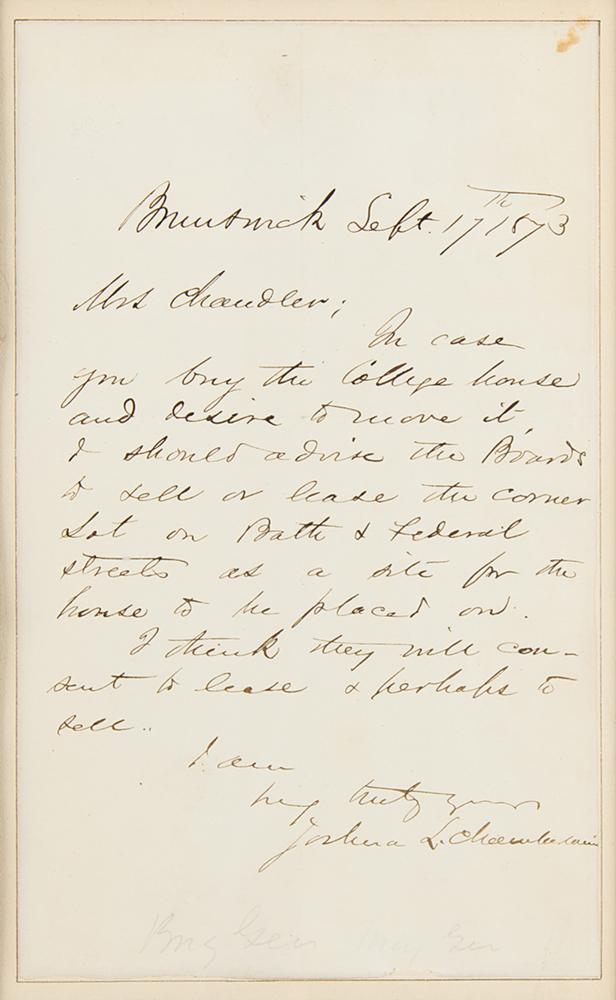 Brunswick Sept. 17th 1873
Mrs Chandler;
In case
you buy the College house
and desire to move it,
I should advise the Boards
to sell or lease the corner
Lot on Bath & Federal
streets as a site for the
house to be placed on.
I think they will con-
sent to lease & perhaps to
sell..
I am
very truly yours
Joshua L. Chamberlain
Brig Gen Maj Gen